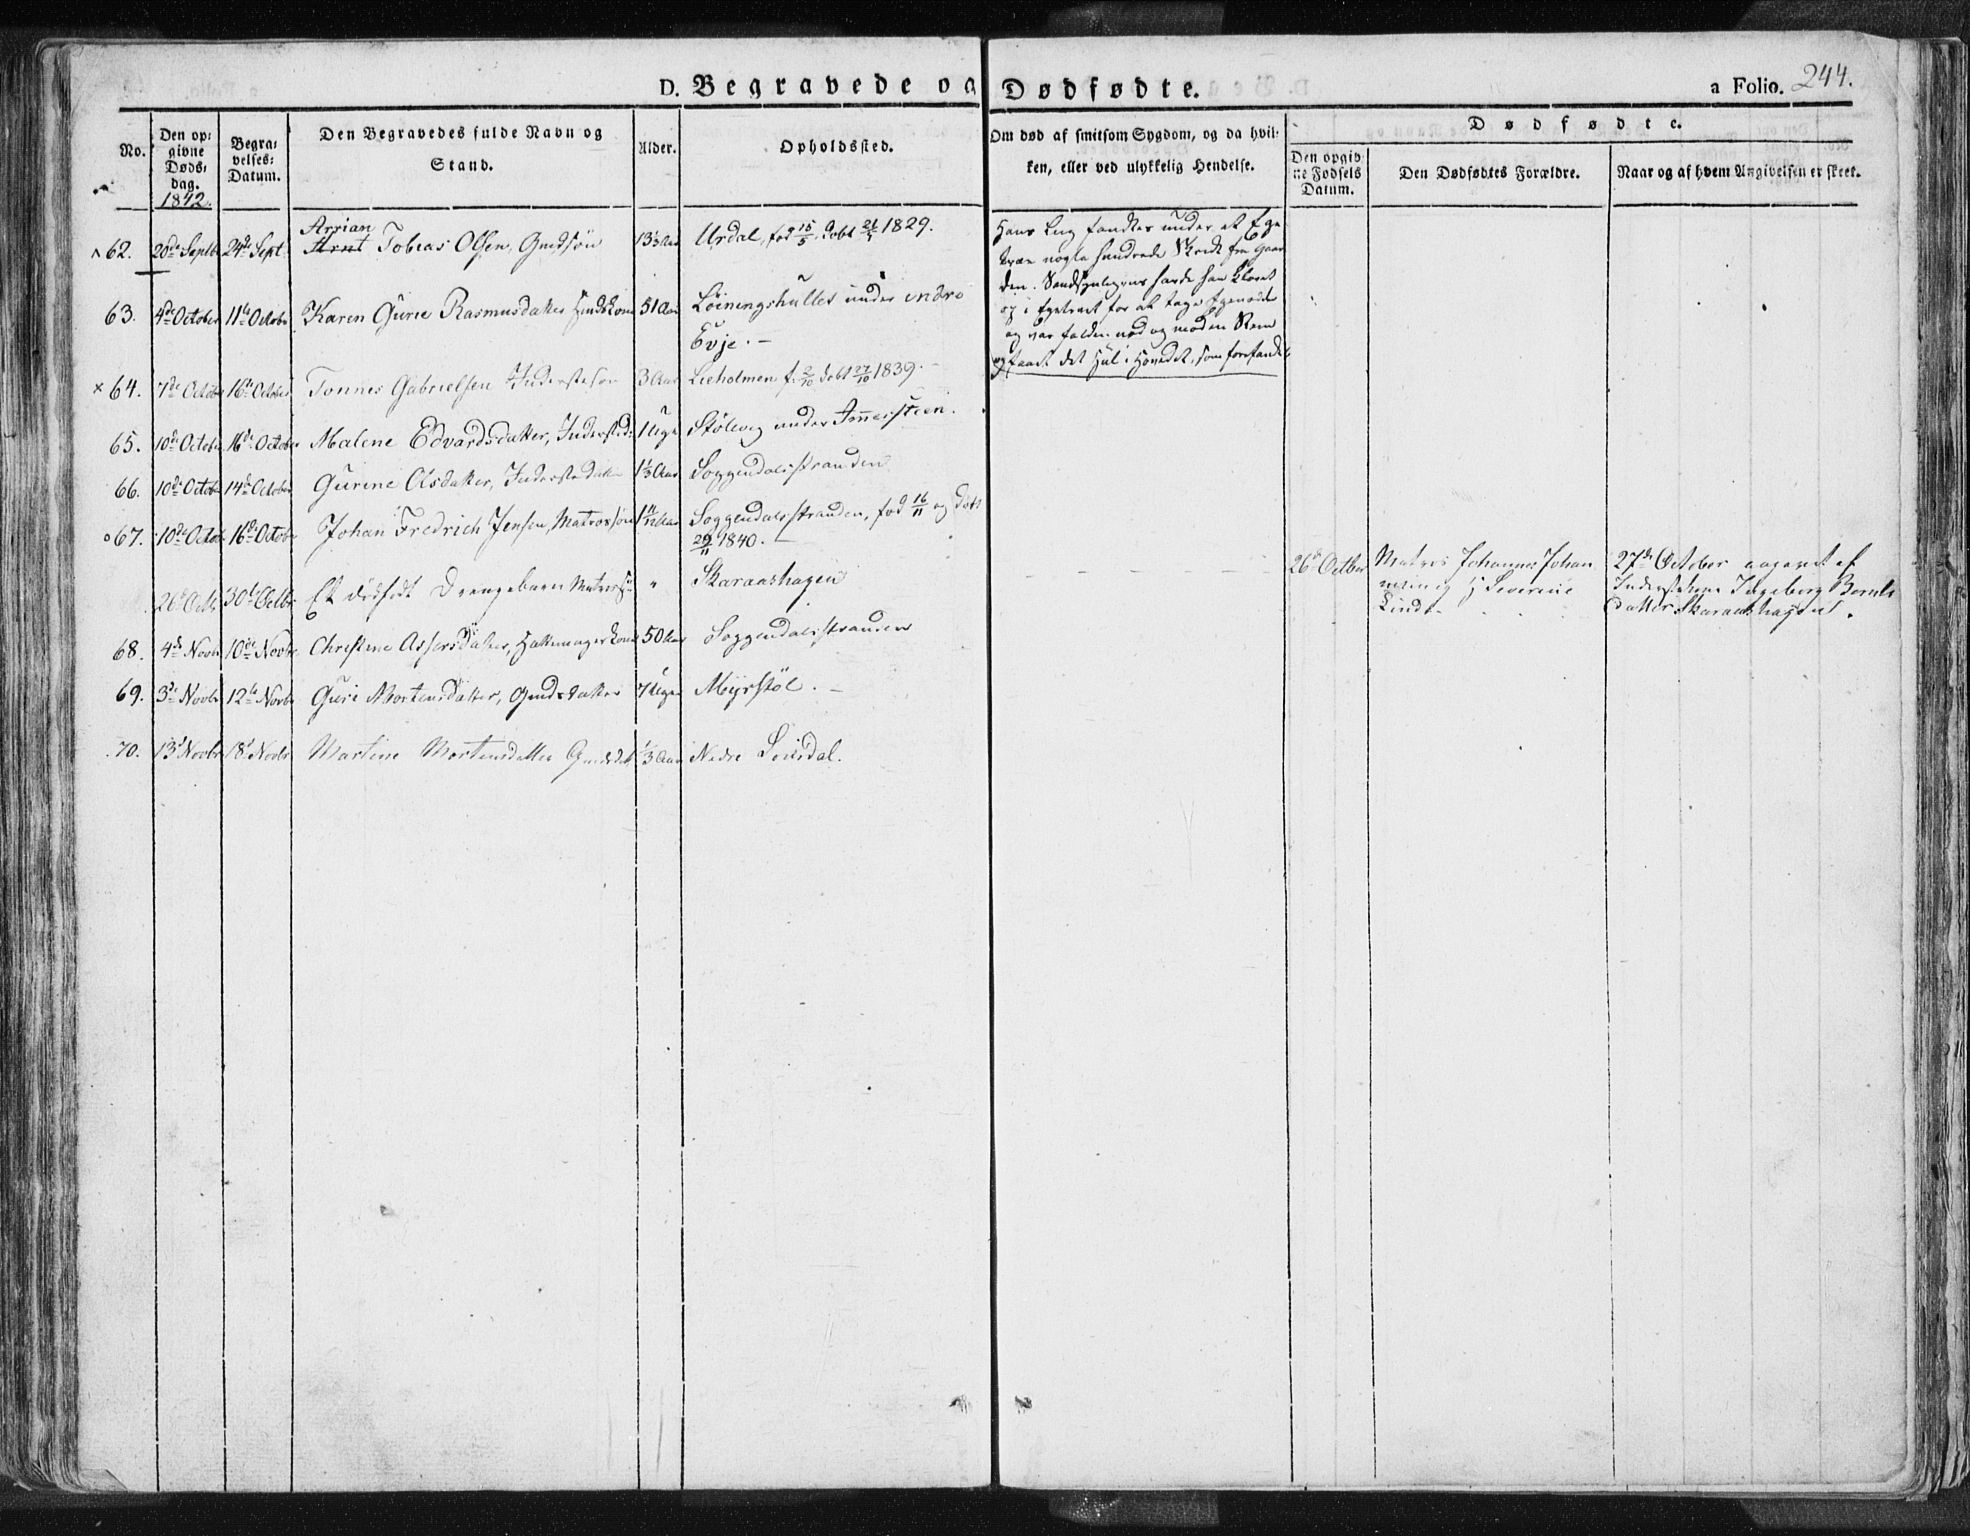 D. Begravede og Dødfødte.
a Folio. 244.
No.
Den op-
givne
Døds-
dag.
1842.
Begra-
velses-
Datum.
Den Begravedes fulde Navn og
Stand.
Alder.
Opholdssted.
Om død af smitsom Sygdom, og da hvil-
ken, eller ved ulykkelig Hendelse.
Dødfødte.
Den opgiv-
ne Fødsels
Datum.
Den Dødfødtes Forældre.
Naar og af hvem Angivelsen er skeet.
Arrian
62. 20de Septbr 24de Sept. Arnt Tobias Olsen, Gmdssøn 13 1/3 Aar Urdal, fød 15/5, døbt 1829.
Hans Liig fandtes under et Ege-
træe nogle hundrede Skridt fra Gaar-
den. Sandsynligviis havde han klavret
op i Egetræet for at tage Egenødder
og var falden ned og mod en Steen
og faaet det Hul i Hovedet, som forefandtes
63. 4de October 11te Octobr Karen Gurie Rasmusdatter 51 Aar Løiningshullet under indre
Evje. -
× 64. 7de Octobr 16de October Tonnes Gabrielsen Inderstesøn 3 Aar Lieholmen f. 2/10 døbt 27/10 1839. -
65. 10de Octobr 16de October Malene Edvardsdatter, Inderstd: 1 Uge Stølevig under
66. 10de Octobr 14de October Gurine Olsdatter, Inderstedatter 1 1/3 Aar Soggendalsstranden
o 67. 10de Octobr 16de Octobr Johan Fredrich Jensen, Matrossøn 1 11/12 Aar Soggendalsstranden, fød 16/11 og døbt
29/11 1840. -
26de Octbr 30te Octbr Et dødfødt Drengebarn " Skaraashagen
26de Octber Matros Johannes Johan
27de October angivet af
Severine
Inderst. Ingeborg Bernts
Linds
datter Skaraashagen.
68. 4de Novbr 10de Novbr Christine Assersdatter, Hattemagerkone 50 Aar Soggendalsstranden
69. 3de Novbr 12te Novbr Guri Mortensdatter, Gmdsdatter 7 Uger Myrstøl. -
70. 13de Novbr 18de Novbr Martine Mortensdatter Gmdsdat. 1/3 Aar Nedre